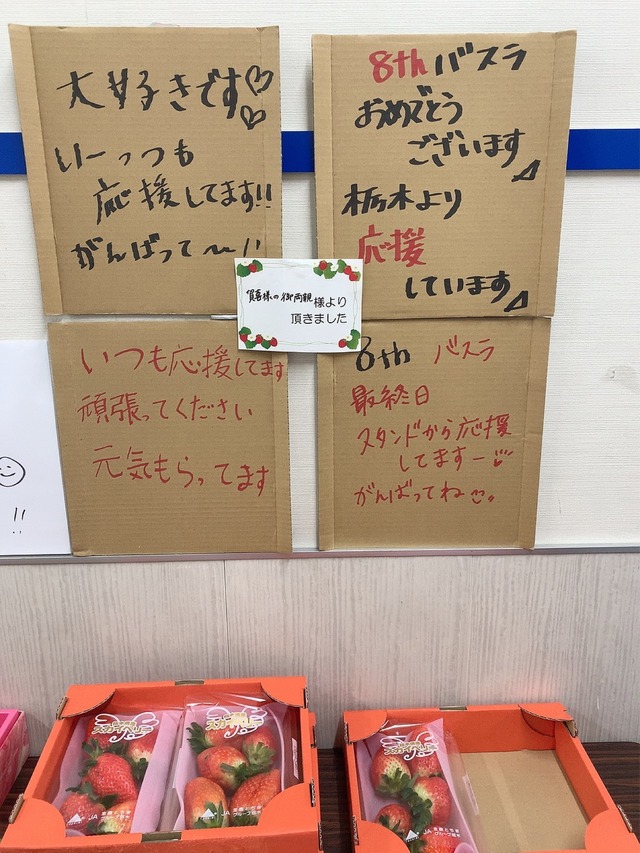 大好きです♡♡
いーっつも
応援してます!!
がんばって〜!!
8th バスラ
おめでとう
ございます
栃木より
応援
しています
賀喜様の御両親様より
頂きました
いつも応援してます
頑張ってください
元気もらってます
8th バスラ
最終日
スタンドから応援
してますー
がんばってね
!!
スカイベリー
スカイベリー
JA
JA